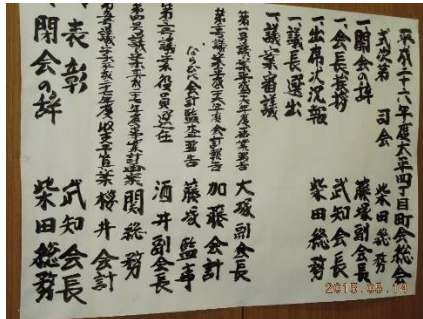 平成二十六年度太平四丁目町会総会
式次第 司会 柴田総務
一、開会の辞 藤塚副会長
一、会長挨拶 武知会長
一、出席次況報 柴田総務
一、議長選出
一、議案審議
第一号議案平成二十六年度事業報告 大塚副会長
第二号議案平成二十六年度会計報告 加藤会計
ならびに会計監査報告 藤塚監事
第三号議案役員選任 酒井副会長
第四号議案平成二十七年度事業計画案 関総務
第五号議案平成二十七年度収支予算案 櫻井会計
一、表彰 武知会長
一、閉会の辞 柴田総務
2015.05.14